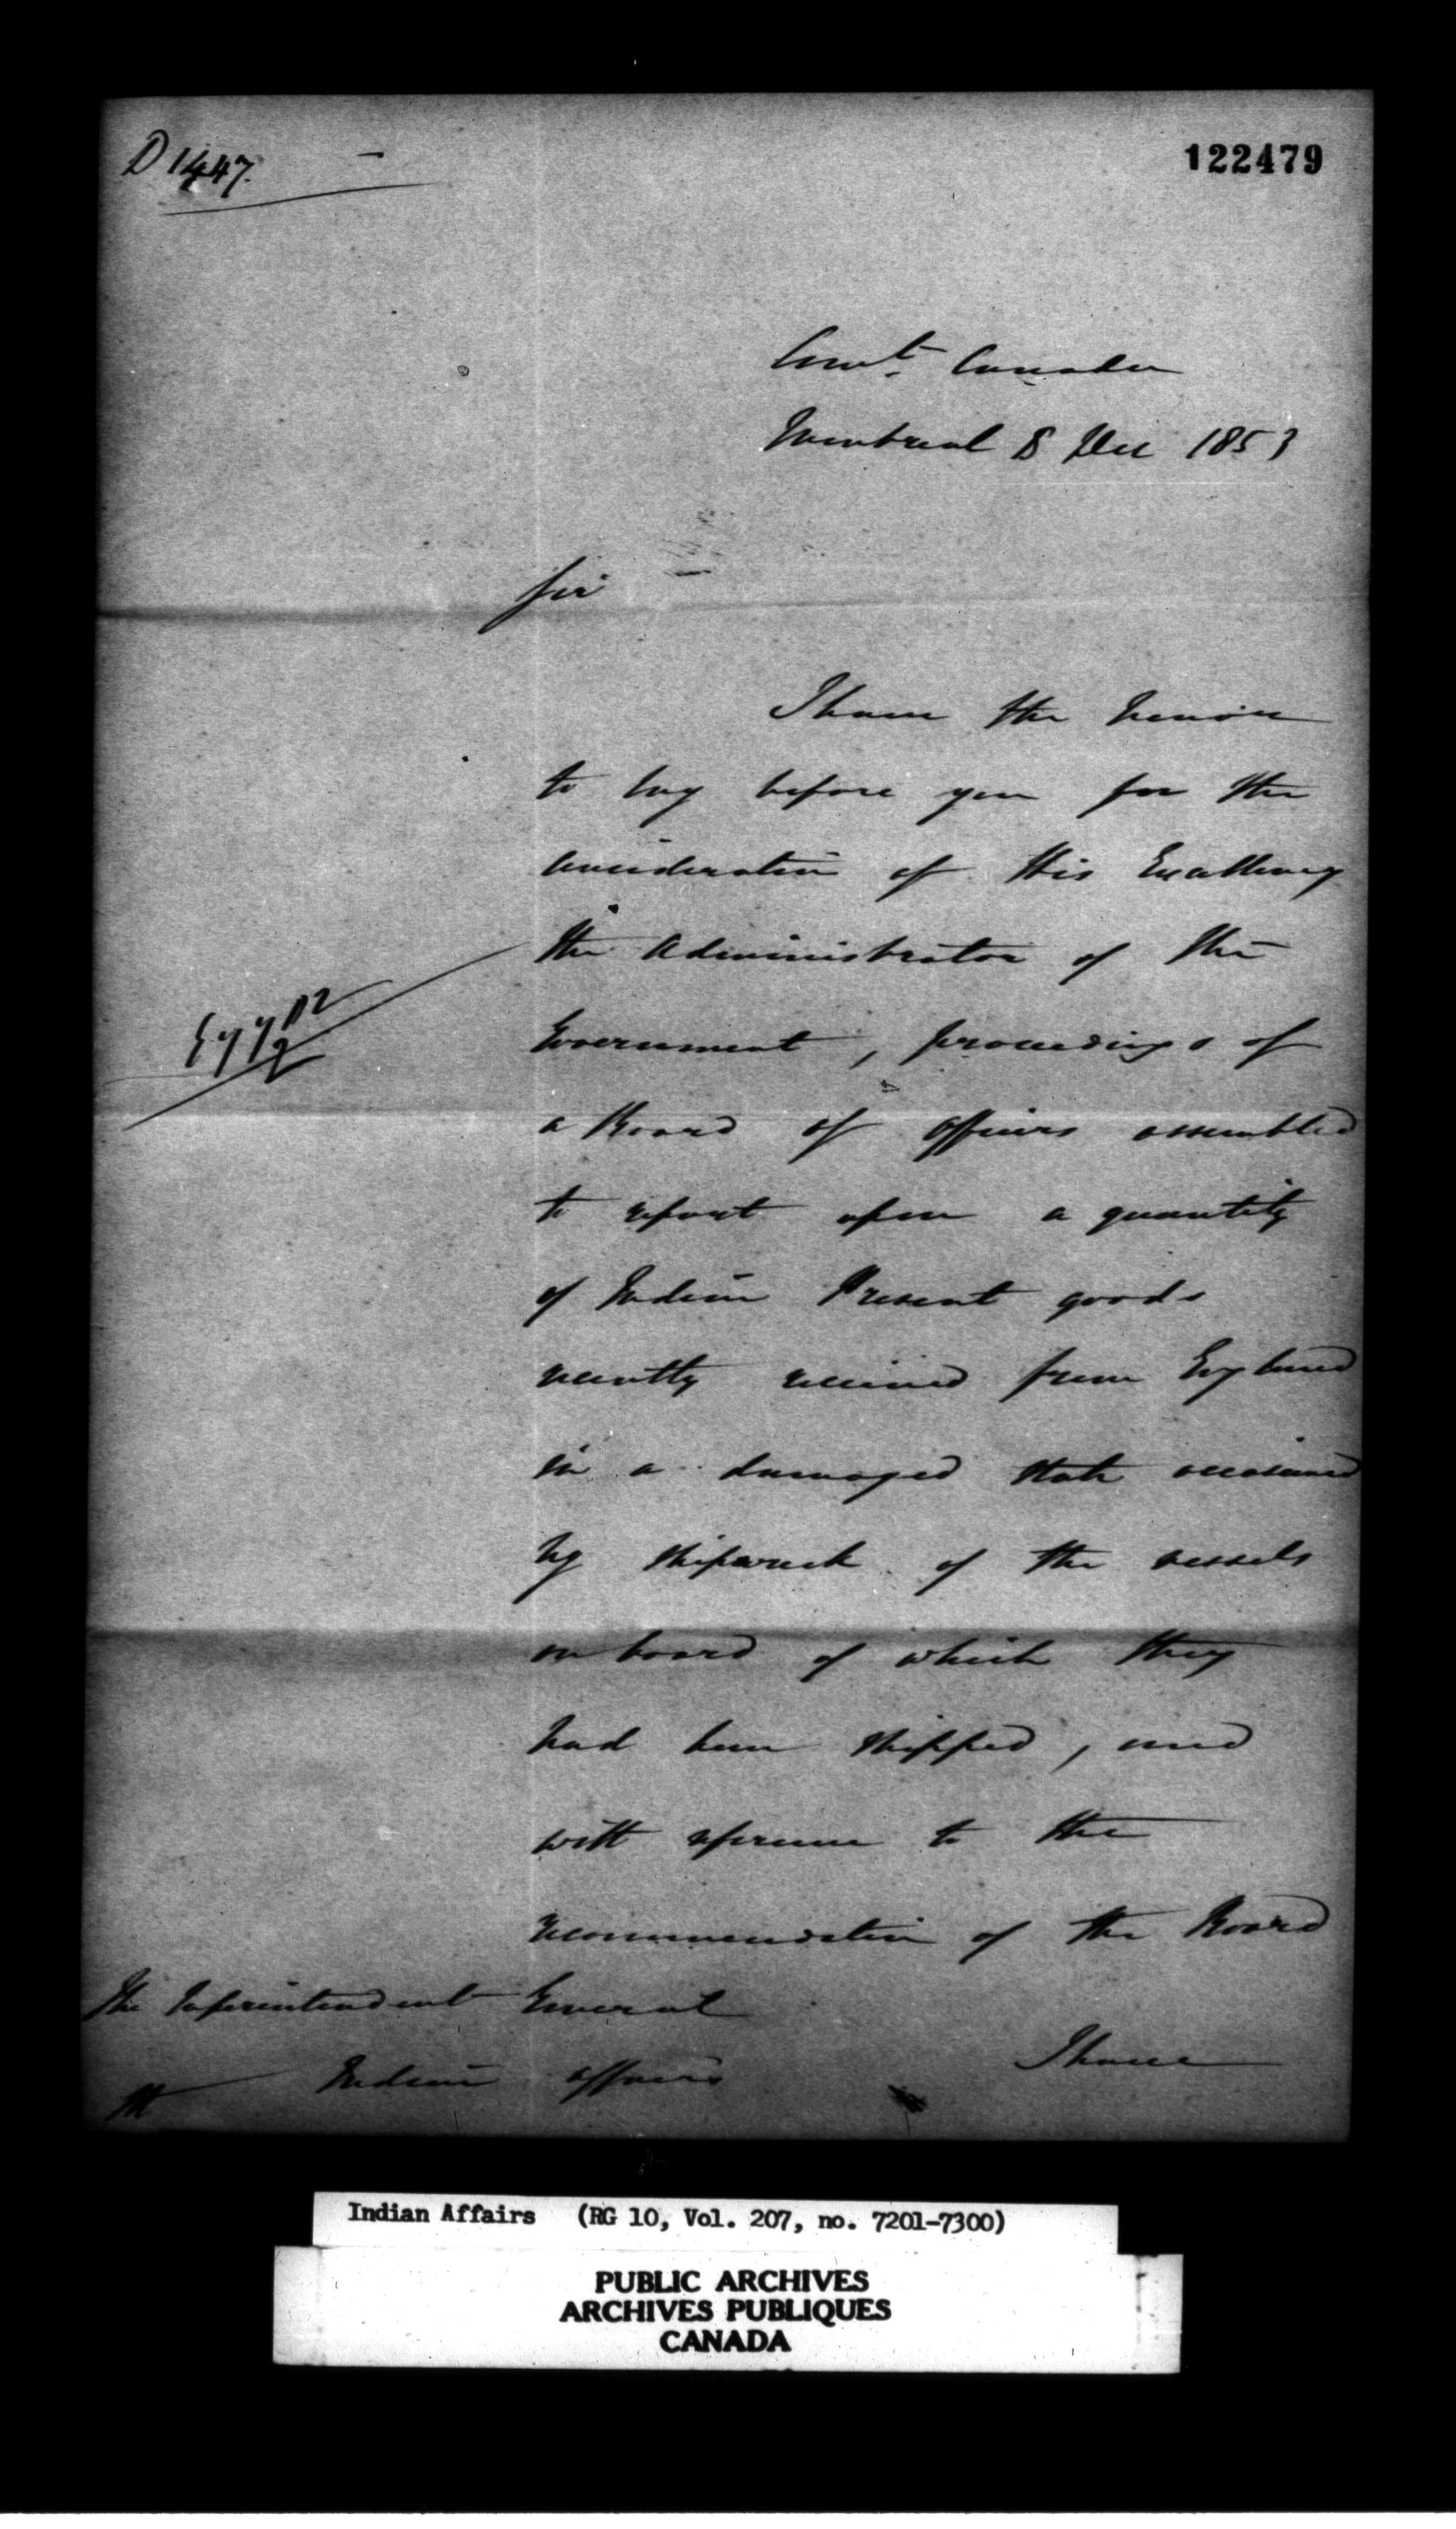 D 1447.
122479
Comt. Canada
Montreal 8 Dec 1853
Sir
I have the honor
to lay before you for the
consideration of His Excellency
the Administrator of the
Government, proceedings of
a Board of Officers assembled
to report upon a quantity
of Indian Present goods
recently received from England
in a damaged state occasioned
by shipwreck of the vessels
on board of which they
had been shipped, and
with reference to the
recommendation of the Board
The Superintendent General
Indian Affairs
I have
Indian Affairs (RG 10, Vol. 207, no. 7201-7300)
PUBLIC ARCHIVES
ARCHIVES PUBLIQUES
CANADA